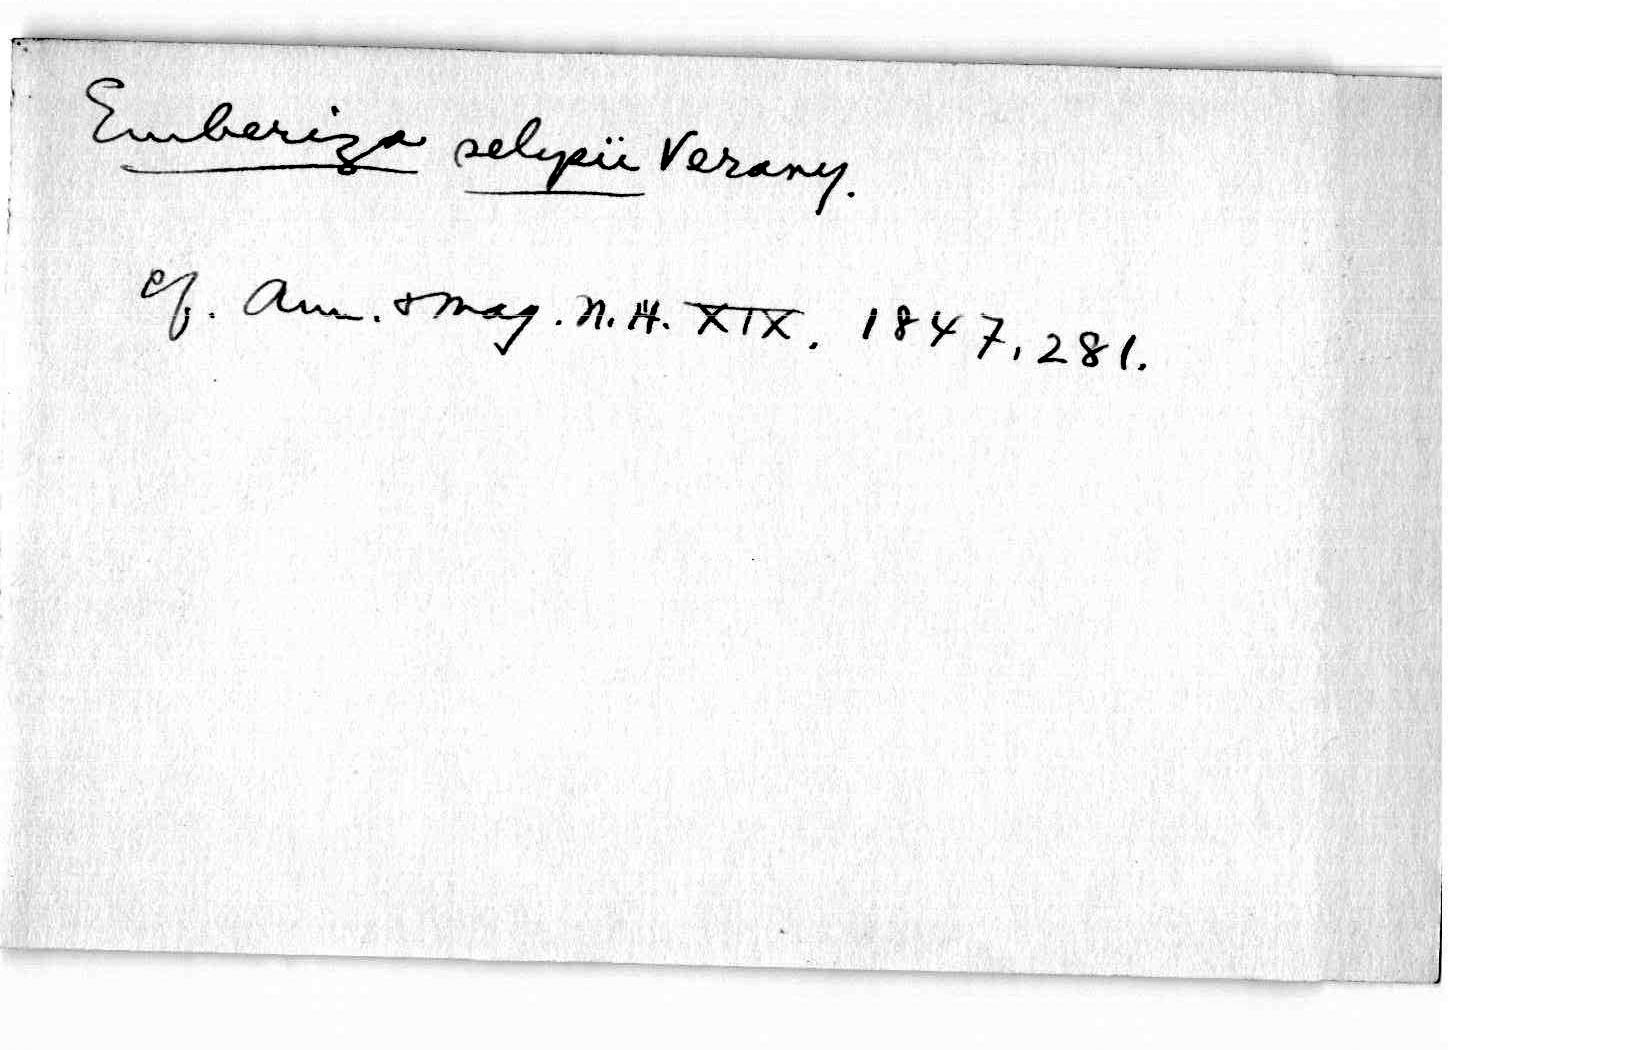 Emberiza selysii Verany.
cf. Ann. & Mag. N. H. XIX. 1847, 281.